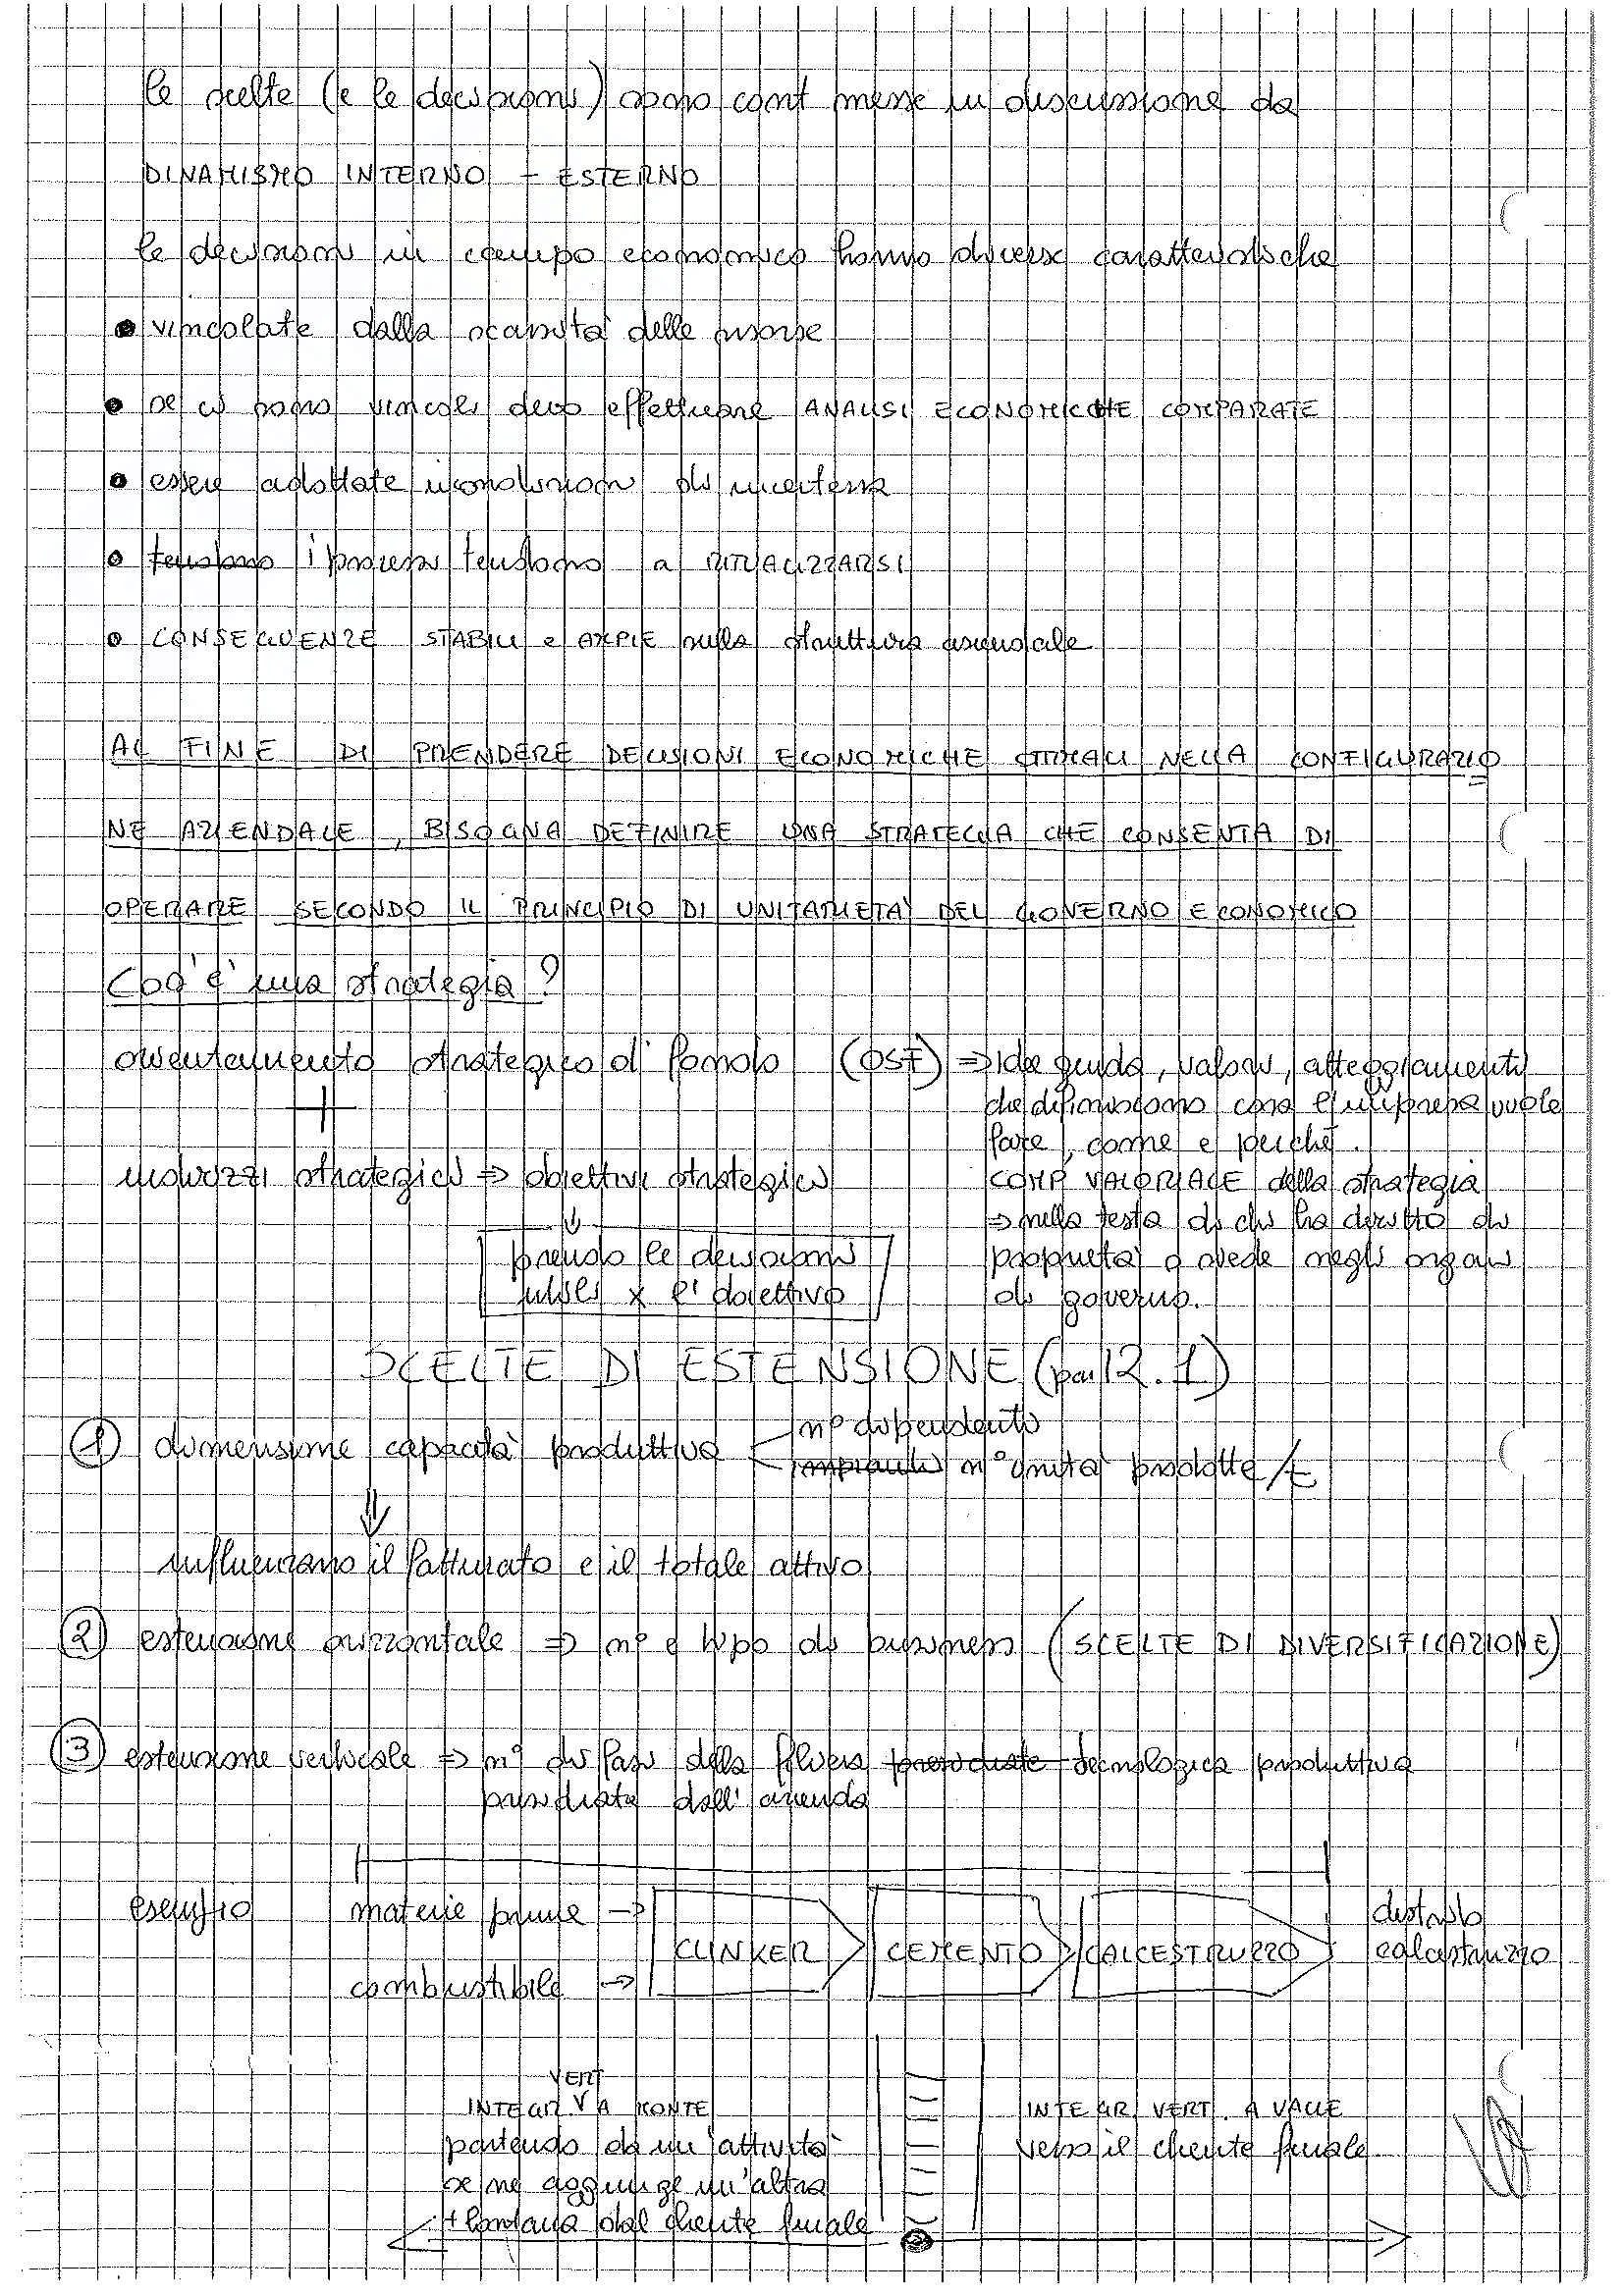 le scelte (e le decisioni) sono cont messe in discussione da
DINAMISMO INTERNO - ESTERNO
le decisioni in campo economico hanno diverse caratteristiche
• vincolate dalla scarsità delle risorse
• se ci sono vincoli devo effettuare ANALISI ECONOMICHE COMPARATE
• essere adottate in condizioni di incertezza
• tendono i processi tendono a RITUALIZZARSI
• CONSEGUENZE STABILI e AMPIE sulla struttura aziendale
AL FINE DI PRENDERE DECISIONI ECONOMICHE OTTIMALI NELLA CONFIGURAZIO
NE AZIENDALE, BISOGNA DEFINIRE UNA STRATEGIA CHE CONSENTA DI
OPERARE SECONDO IL PRINCIPIO DI UNITARIETÀ DEL GOVERNO ECONOMICO
Cos'è una strategia?
orientamento strategico di fondo (OSF) ⇒ Idee guida, valori, atteggiamenti
che definiscono cosa l'impresa vuole
+
fare, come e perché.
indirizzi strategici ⇒ obiettivi strategici
COMP VALORIALE della strategia
⇒ nella testa di chi ha diritto di
prendo le decisioni
proprietà o siede negli organi
utili x l'obiettivo
di governo.
SCELTE DI ESTENSIONE (par 12.1)
① dimensione capacità produttiva
n° dipendenti
impianti n° unità prodotte/t
⇓
influenzano il fatturato e il totale attivo
② estensione orizzontale ⇒ n° e tipo di business (SCELTE DI DIVERSIFICAZIONE)
③ estensione verticale ⇒ n° di fasi della filiera presidiate tecnologica produttiva
presidiate dall'azienda
esempio
materie prime →
combustibile →
CLINKER
CEMENTO
CALCESTRUZZO
calcestruzzo
VERT
INTEGR. A MONTE
partendo da un'attività
se ne aggiunge un'altra
+ lontana dal cliente finale
INTEGR. VERT. A VALLE
verso il cliente finale